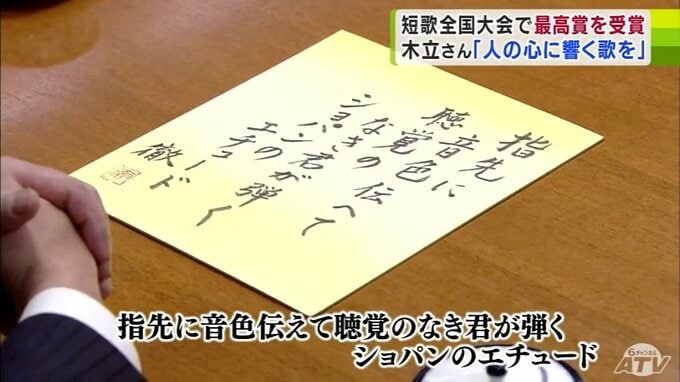 短歌全国大会で最高賞を受賞
木立さん「人の心に響く歌を」
指先に
音色伝へて
聴覚の
なき君が弾く
ショパンの
エチュード
徹
指先に音色伝えて聴覚のなき君が弾く
ショパンのエチュード
6チャンネル
ATV